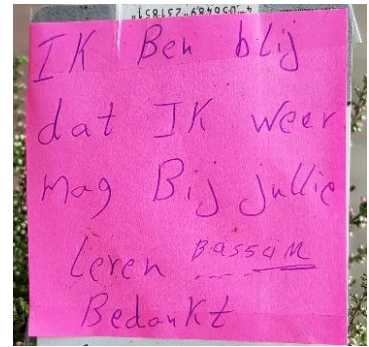 IK Ben blij
dat IK weer
mag Bij jullie
leren BassaM
Bedankt